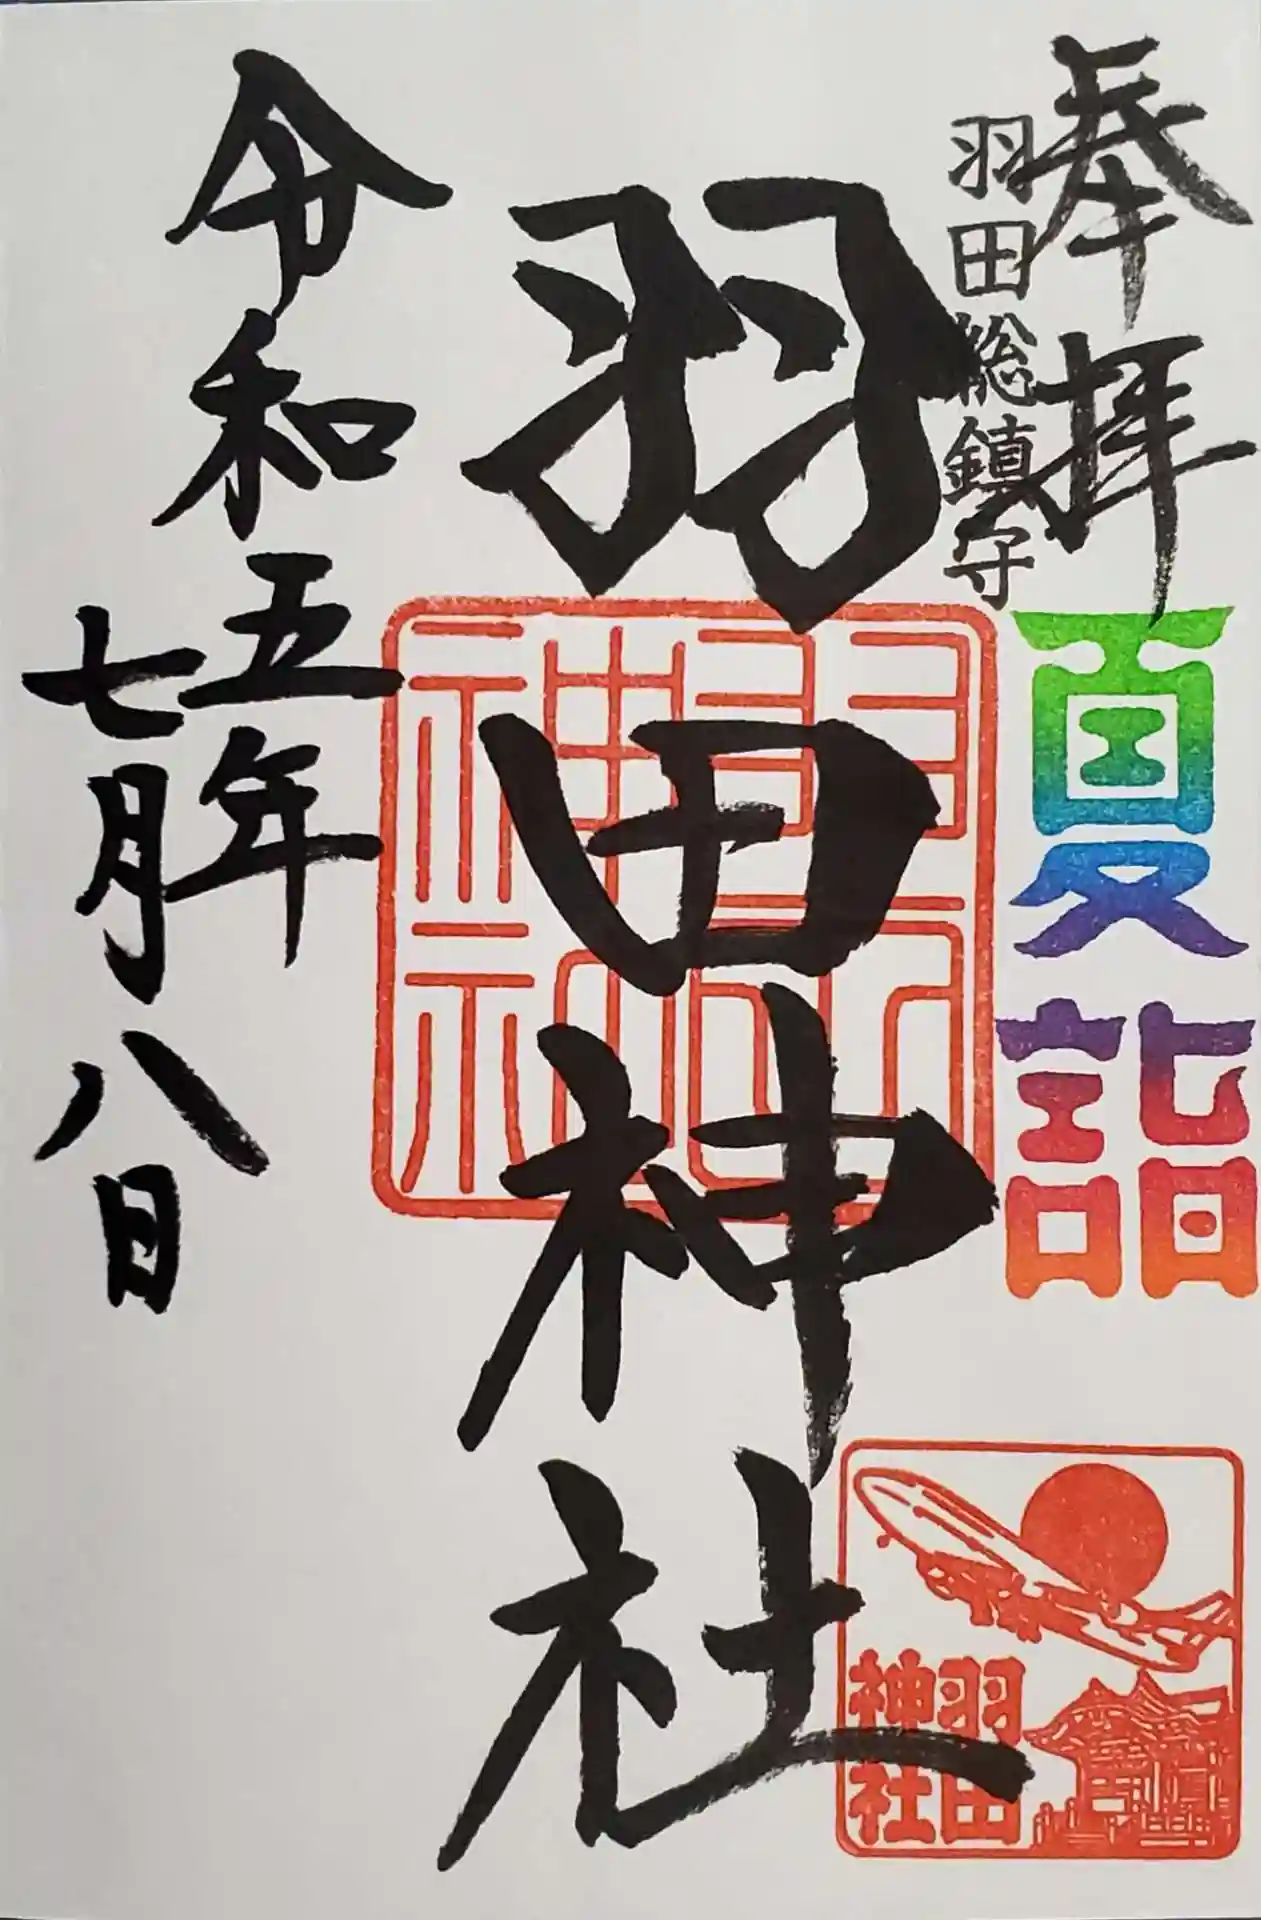 奉拝
羽田総鎮守
夏詣
羽田神社
羽田神社
羽田
神社
令和五年
七月八日